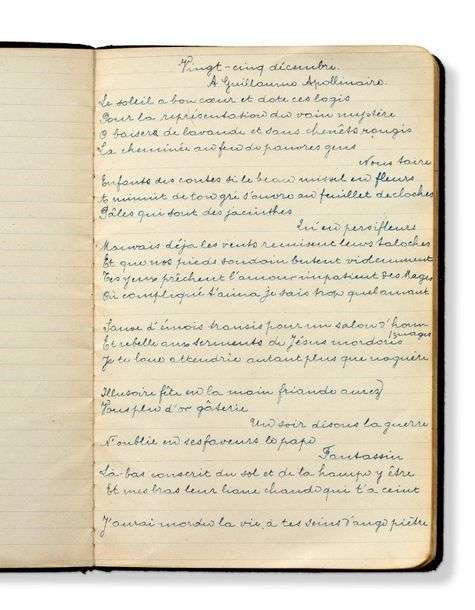 Vingt-cinq décembre.
A Guillaume Apollinaire.
Le soleil a bon cœur et dote ces logis
Pour la représentation du vain mystère
O baisers de lavande et sans chenêts rougis
La cheminée au feu de pauvres gens
Nous taire
Enfants des contes si le beau missel en fleurs
A minuit de son gré s'ouvre au feuillet de cloches
Pâles qui sont des jacinthes
Qu'en persifleurs
Mauvais déjà les vents remisent leurs taloches
Et que nos pieds soudain butent videmment
Tes yeux prêchent l'amour impatient des Mages
Où compliqué t'aima je sais trop quel amant
Sauve d'émois transis pour un salon d'hom-
mages
Et rebelle aux serments de Jésus mordorés
Je te loue attendrie autant plus que naguère
Illusoire fête en la main friande aurez
Vous plus d'or gâterie
Un soir disons la guerre
N'oublie en ses faveurs le pape
Fantassin
Là-bas conscrit du sol et de la hampe y être
Et mes bras leur liane chaude qui t'a ceint
J'aurai mordu la vie à tes seins d'ange piètre